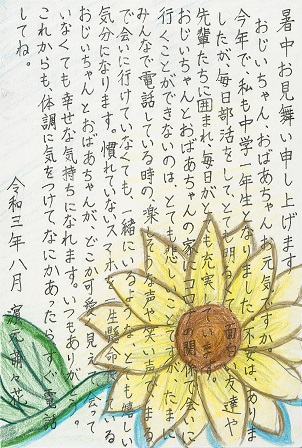 暑中お見舞い申し上げます
おじいちゃん、おばあちゃんお元気ですか。
今年で、私も中学一年生となりました。不安は、ありま
したが、毎日部活をして、とても明るくて面白い友達や
先輩たちに囲まれ、毎日がとても充実しています。
おじいちゃんとおばあちゃんの家にコロナの関係で会いに
行くことができないのは、とても悲しいことですが、たまに
みんなで電話している時の、楽しそうな声や笑い声でまる
で会いに行けていなくても、一緒にいるようなとても嬉しい
気分になります。慣れていないスマホを一生懸命 ている
おじいちゃんとおばあちゃんが、どこか可愛く見えて会って
いなくても幸せな気持ちになれます。いつもありがとう。
これからも、体調に気をつけて、なにかあったらすぐ電話
してね。
令和三年八月 濵元萌々花